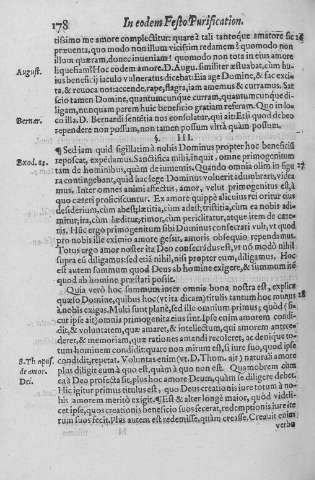 178
In eodem Festo Purification.
tissimo me amore complectitur: quare à tali tantoque amatore sic
præuenta, quo modo non illum vicissim redamem? quomodo non
illum quæram, donec inueniam? quomodo non tota in eius amore
August.
liquefiam? Hoc eodem amore D. Augu. similiter æstuabat, cùm hu-
ius beneficij iaculo vulneratus dicebat: Eia age Domine, & fac excita
ta, & reuoca nos accende, rape, flagra, iam amemus & curramus. Sat
scio tamen Domine, quantumcunque curram, quantumcunque di-
ligam, nunquam parem huic beneficio gratiam referam. Quo in lo-
Bernar.
co illa D. Bernardi sententia nos consolatur, qui ait: Etsi quod debeo
rependere non possum, non tamen possum vltra quàm possum.
§. III.
¶ Sed iam quid sigillatim à nobis Dominus propter hoc beneficiũ
Exod. 13.
reposcat, expédamus. Sanctifica mihi, inquit, omne primogenitum
tam de hominibus, quàm de iumentis. Quando omnia olim in figu
27
ra contingebant, quid hac lege Dominus voluerit adumbrari, videa
mus. Inter omnes animi affectus, amor, velut primogenitus est, à
quo cæteri proficiscuntur. Ex amore quippe alicuius rei oritur eius
desiderium, cùm abest; lætitia, cùm adest; tristitia, cùm ea nobis adi-
mitur; ira, cùm læditur; timor, cùm periclitatur, atque item de cæte-
ris. Huc ergo primogenitum sibi Dominus consecrari vult, vt quod
pro nobis ille eximio amore gessit, amoris obsequio rependamus.
Totus ergo amor noster ita Deo consecrãdus est, vt nõ modò nihil
supra eũ diligamus, sed etiã nihil, nisi propter eum, diligamus. Hoc
est autem summum quod Deus ab homine exigere, & summum itẽ
quod ab homine præstari possit.
Quia verò hoc summum inter omnia bona nostra est, explica
quæso Domine, quibus hoc (vt ita dicam) titulis tantum hoc munus
28
à nobis exigas. Multi sunt planè, sed ille omnium primus, quòd (si-
cut ipse ait) omnia primogenita eius sint. Ipse enim amorem condi-
dit, & voluntatem, quæ amaret, & intellectum, qui amorem antece-
deret, & memoriam, quæ rationes amandi recoleret, ac denique to-
tum hominem condidit: quare non mirum est, si iure suo, quod ipse
S. Th. opus.
condidit, repetat. Voluntas enim (vt D. Thom. ait) naturali amore
de amor.
plus diligit eum à quo est, quàm à quo non est. Quamobrem cùm
Dei.
ea à Deo profecta sit, plus hoc amore Deum, quàm se diligere debet.
Hic igitur primus titulus est, quo Deus creationis iure totum à no-
bis amorem meritò exigit. ¶ Est & alter longè maior, quòd videli-
cet ipse, quos creationis beneficio suos fecerat, redemptionis iure ite
rum suos fecit. Plus autem est redemisse, quàm creasse. Creauit enim
verbo